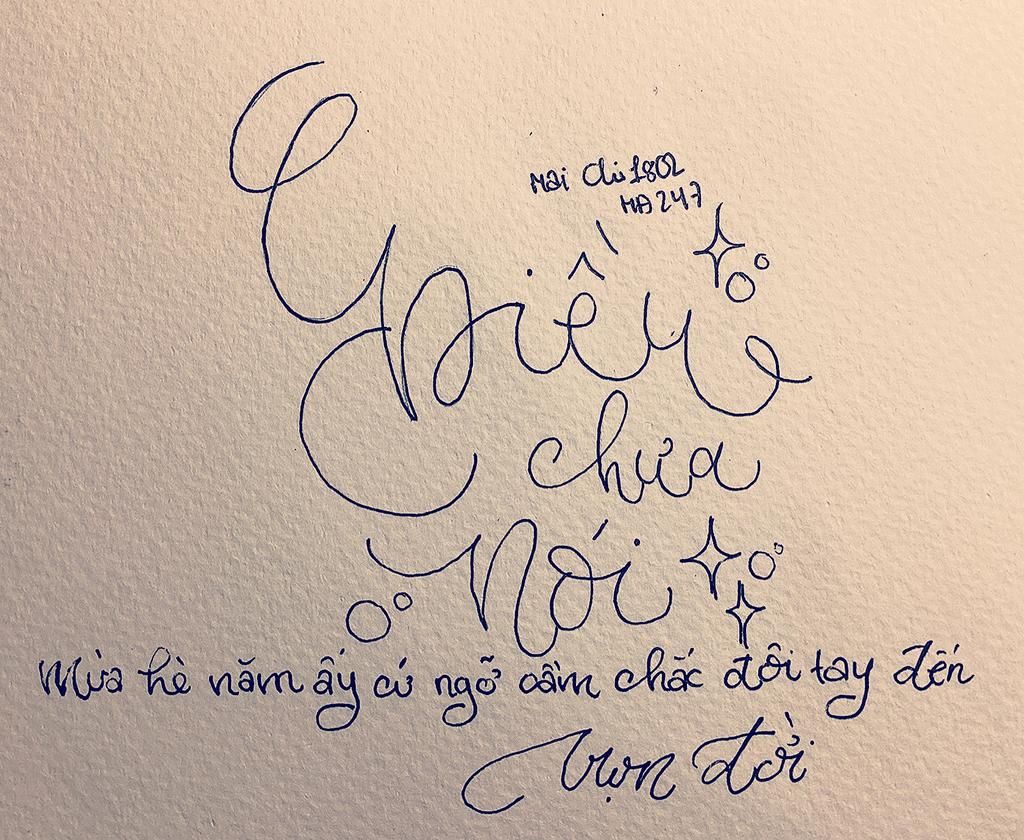 Mai Chi 1802
MA 247
Điều
chưa
Nói
Mùa hè năm ấy cứ ngỡ cầm chắc đôi tay đến
trọn đời